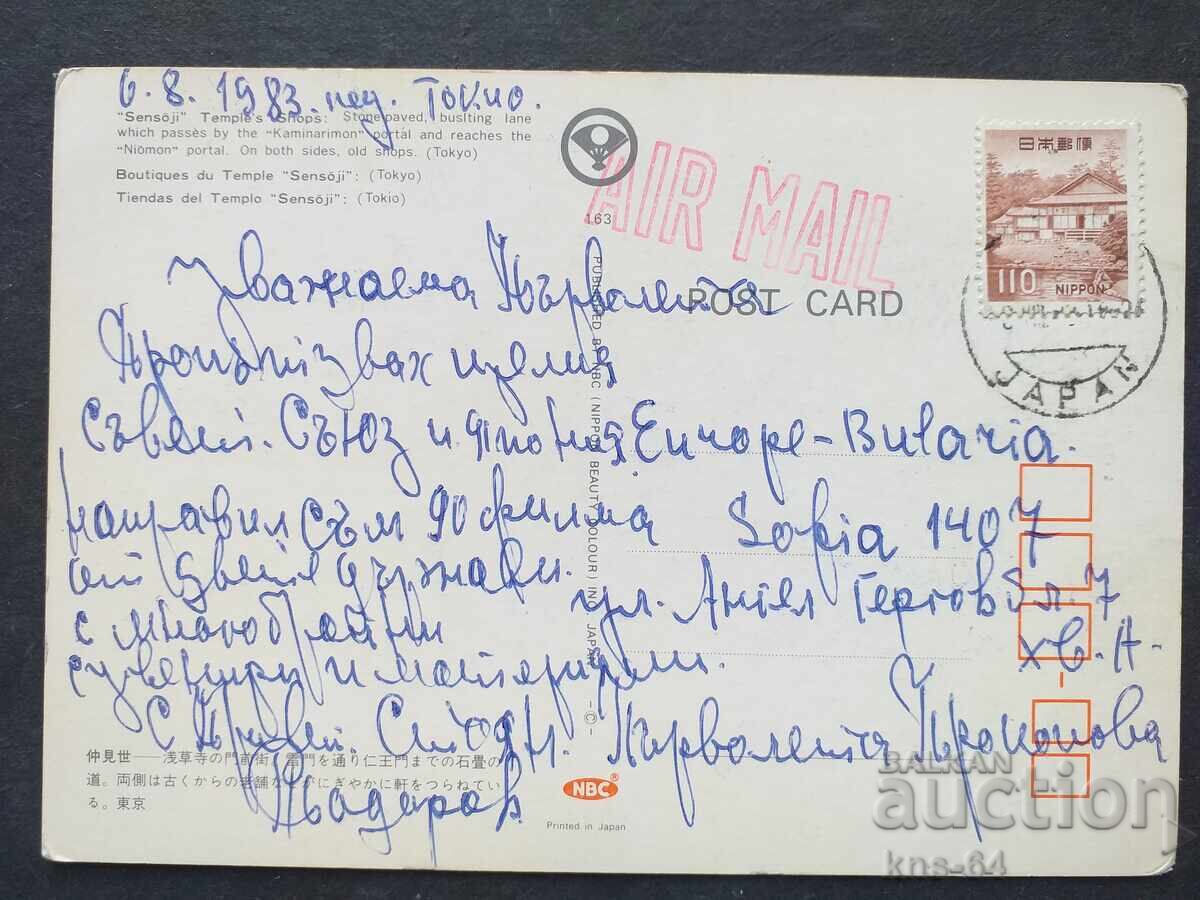 6.8.1983. нед. Токио.
"Sensōji" Temple's Shops: Stone-paved, buslting lane
which passes by the "Kaminarimon" portal and reaches the
"Niōmon" portal. On both sides, old shops. (Tokyo)
Boutiques du Temple "Sensōji": (Tokyo)
Tiendas del Templo "Sensōji": (Tokio)
163
AIR MAIL
日本郵便
110 NIPPON
JAPAN
POST CARD
PUBLISHED BY NBC (NIPPON BEAUTY COLOUR) IN JAPAN -©-
Уважаема Първолета
целия
Съвет. Съюз и Япония
направил съм 90 филма
от двете държави.
с многобройни
сувенири и материали.
С привет. Стоян.
Europe-Bularia.
Sofia 1407
ул. Ангел Гергов бл. 7
хв. А.
Първолета Прокопова
仲見世——浅草寺の門前街。雷門を通り仁王門までの石畳の
道。両側は古くからの老舗などがにぎやかに軒をつらねてい
る。東京
NBC®
Printed in Japan
BALKAN
auction
kns-64